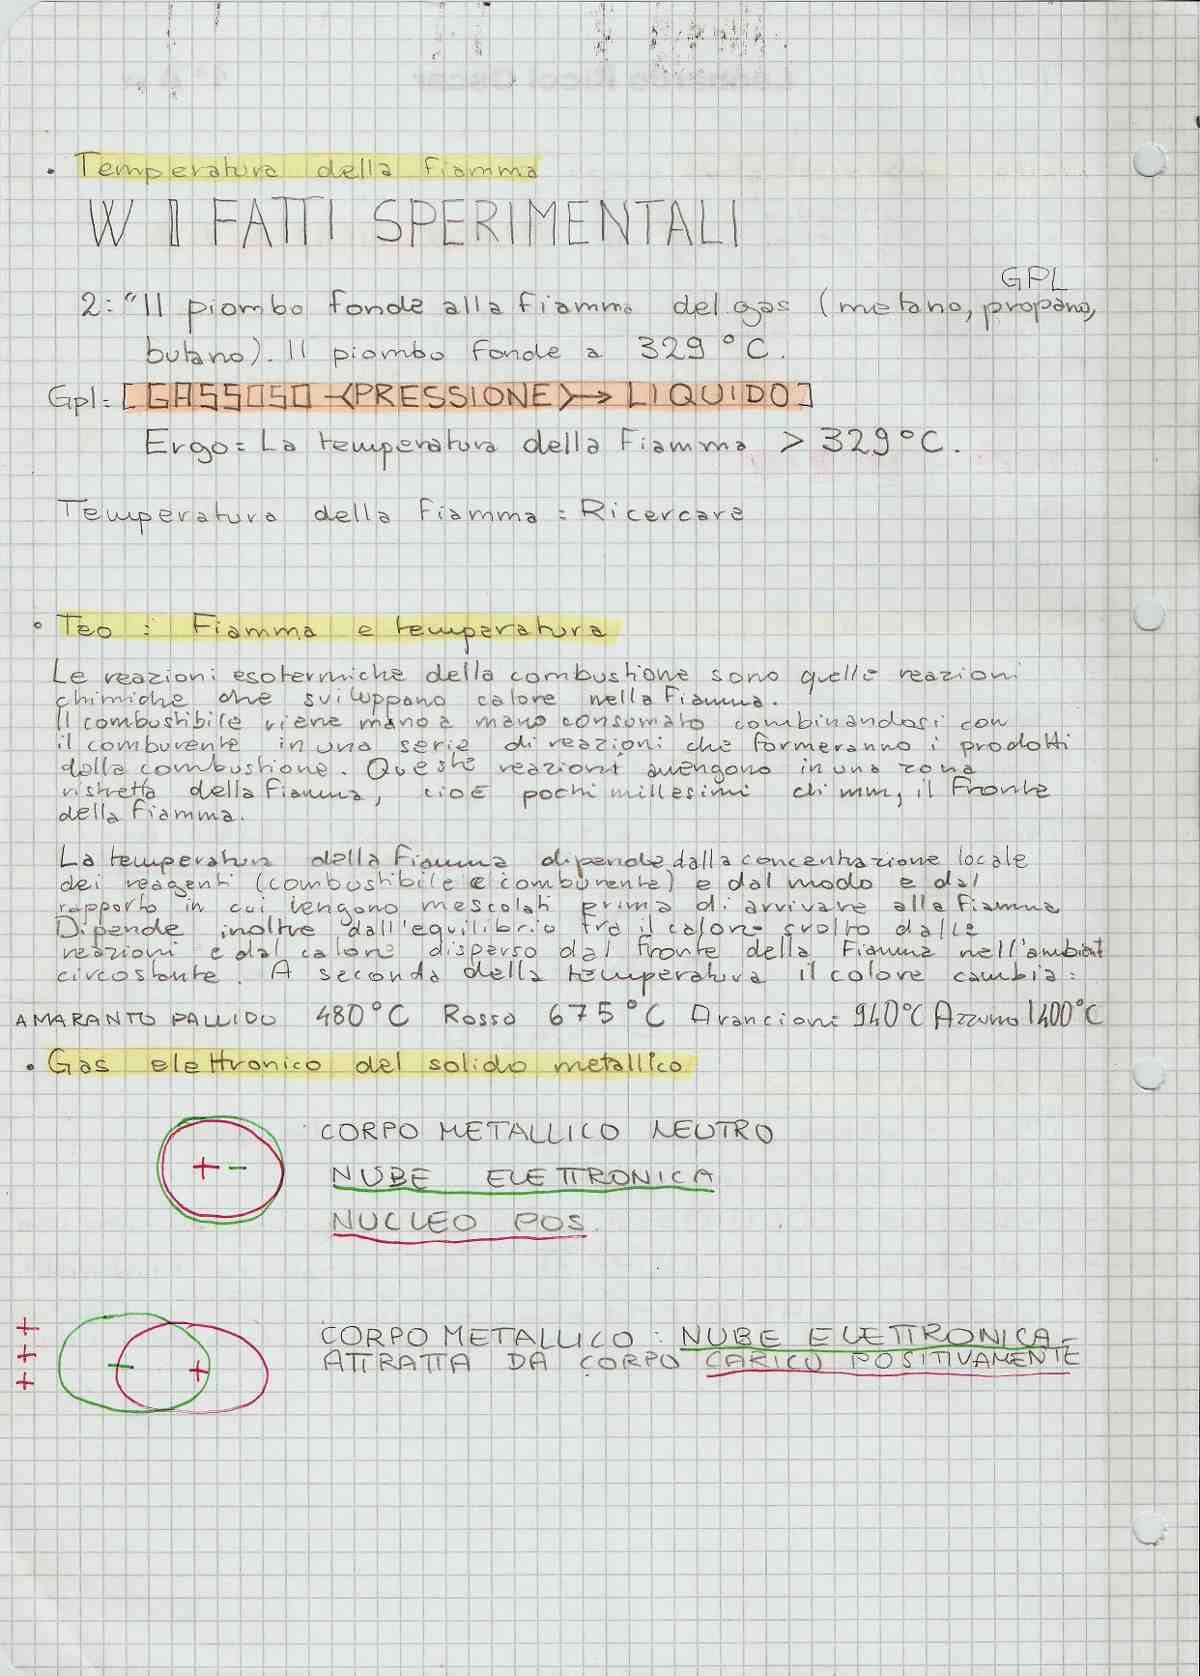 • Temperatura della fiamma
W I FATTI SPERIMENTALI
GPL
2: "Il piombo fonde alla fiamma del gas (metano, propano,
butano). Il piombo fonde a 329°C.
Gpl: [GASSOSO -<PRESSIONE>-> LIQUIDO]
Ergo = La temperatura della fiamma > 329°C.
Temperatura della fiamma : Ricercare
• Teo : Fiamma e temperatura
Le reazioni esotermiche della combustione sono quelle reazioni
chimiche che sviluppano calore nella fiamma.
Il combustibile viene mano a mano consumato combinandosi con
il comburente in una serie di reazioni che formeranno i prodotti
della combustione. Queste reazioni avvengono in una zona
ristretta della fiamma, cioè pochi millesimi di mm, il fronte
della fiamma.
La temperatura della fiamma dipende dalla concentrazione locale
dei reagenti (combustibile e comburente) e dal modo e dal
rapporto in cui vengono mescolati prima di arrivare alla fiamma
Dipende inoltre dall'equilibrio tra il calore svolto dalle
reazioni e dal calore disperso dal fronte della fiamma nell'ambient
circostante. A seconda della temperatura il colore cambia:
AMARANTO PALLIDO 480°C Rosso 675°C Arancioni 940°C Azzurro 1400°C
• Gas elettronico del solido metallico
+ -
CORPO METALLICO NEUTRO
NUBE ELETTRONICA
NUCLEO POS.
+
+
+
- +
CORPO METALLICO : NUBE ELETTRONICA
ATTRATTA DA CORPO CARICO POSITIVAMENTE